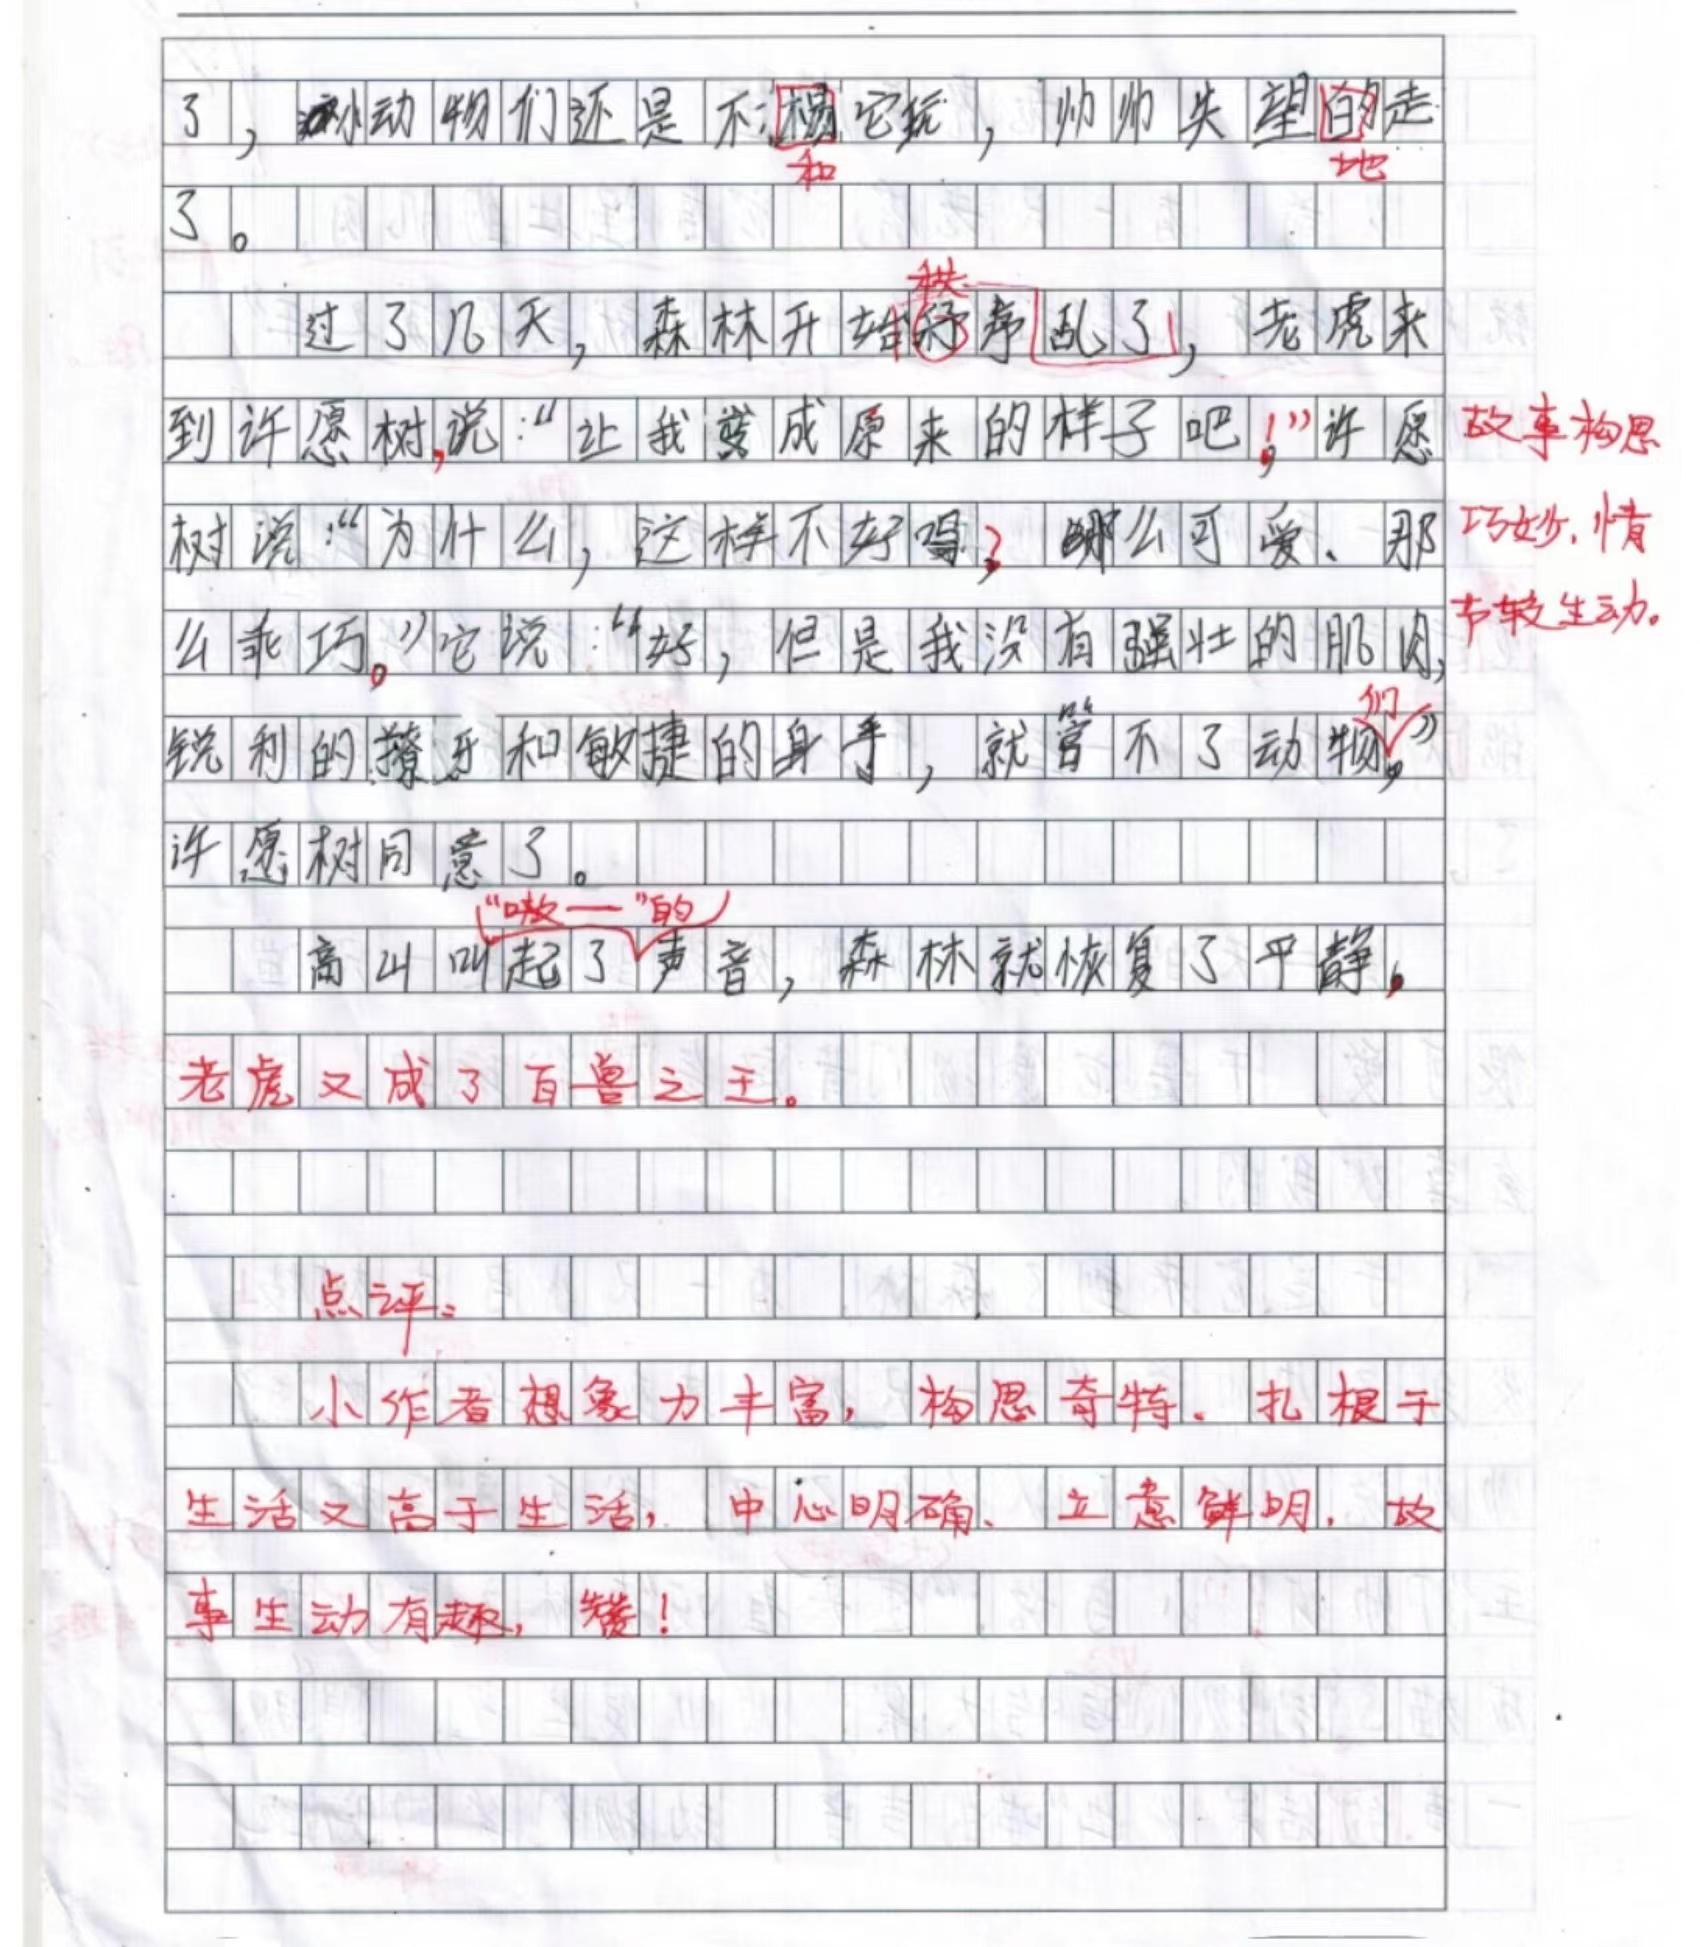 了，小动物们还是不 它玩，帅帅失望的走
和 地
了。
秩
过了几天，森林开始 序乱了，老虎来
到许愿树，说：“让我变成原来的样子吧！”许愿
故事构思
树说：“为什么，这样不好吗？那么可爱、那
巧妙，情
么乖巧。”它说：“好，但是我没有强壮的肌肉，
节较生动。
们
锐利的獠牙和敏捷的身手，就管不了动物。”
许愿树同意了。
“嗷——”的
高山叫起了声音，森林就恢复了平静，
老虎又成了百兽之王。
点评：
小作者想象力丰富，构思奇特。扎根于
生活又高于生活，中心明确、立意鲜明，故
事生动有趣，赞！